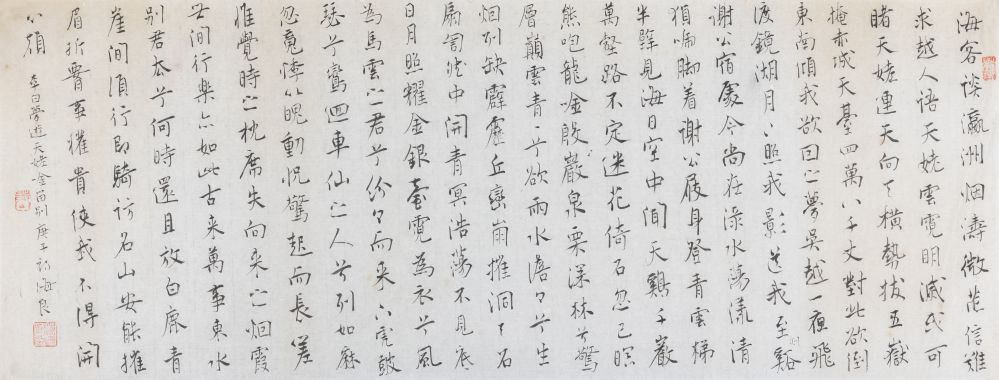 海客談瀛洲烟濤微茫信難
求越人語天姥雲霓明滅或可
睹天姥連天向天橫勢拔五嶽
掩赤城天臺四萬八千丈對此欲倒
東南傾我欲因之夢吳越一夜飛
渡鏡湖月〻照我影送我至剡谿
謝公宿處今尚在淥水蕩漾清
猿啼脚着謝公屐身登青雲梯
半壁見海日空中聞天鷄千巖
萬壑路不定迷花倚石忽已暝
熊咆龍吟殷巖泉栗深林兮驚
層巔雲青〻兮欲雨水澹〻兮生
烟列缺霹靂丘巒崩摧洞天石
扇訇然中開青冥浩蕩不見底
日月照耀金銀臺霓為衣兮風
為馬雲之君兮紛〻而来下虎鼓
瑟兮鸞回車仙之人兮列如麻
忽魂悸以魄動怳驚起而長嗟
惟覺時之枕席失向来之烟霞
世間行樂亦如此古来萬事東水
別君去兮何時還且放白鹿青
崖間須行即騎訪名山安能摧
眉折腰事權貴使我不得開
心顏
李白夢遊天姥吟留別庚子 海良